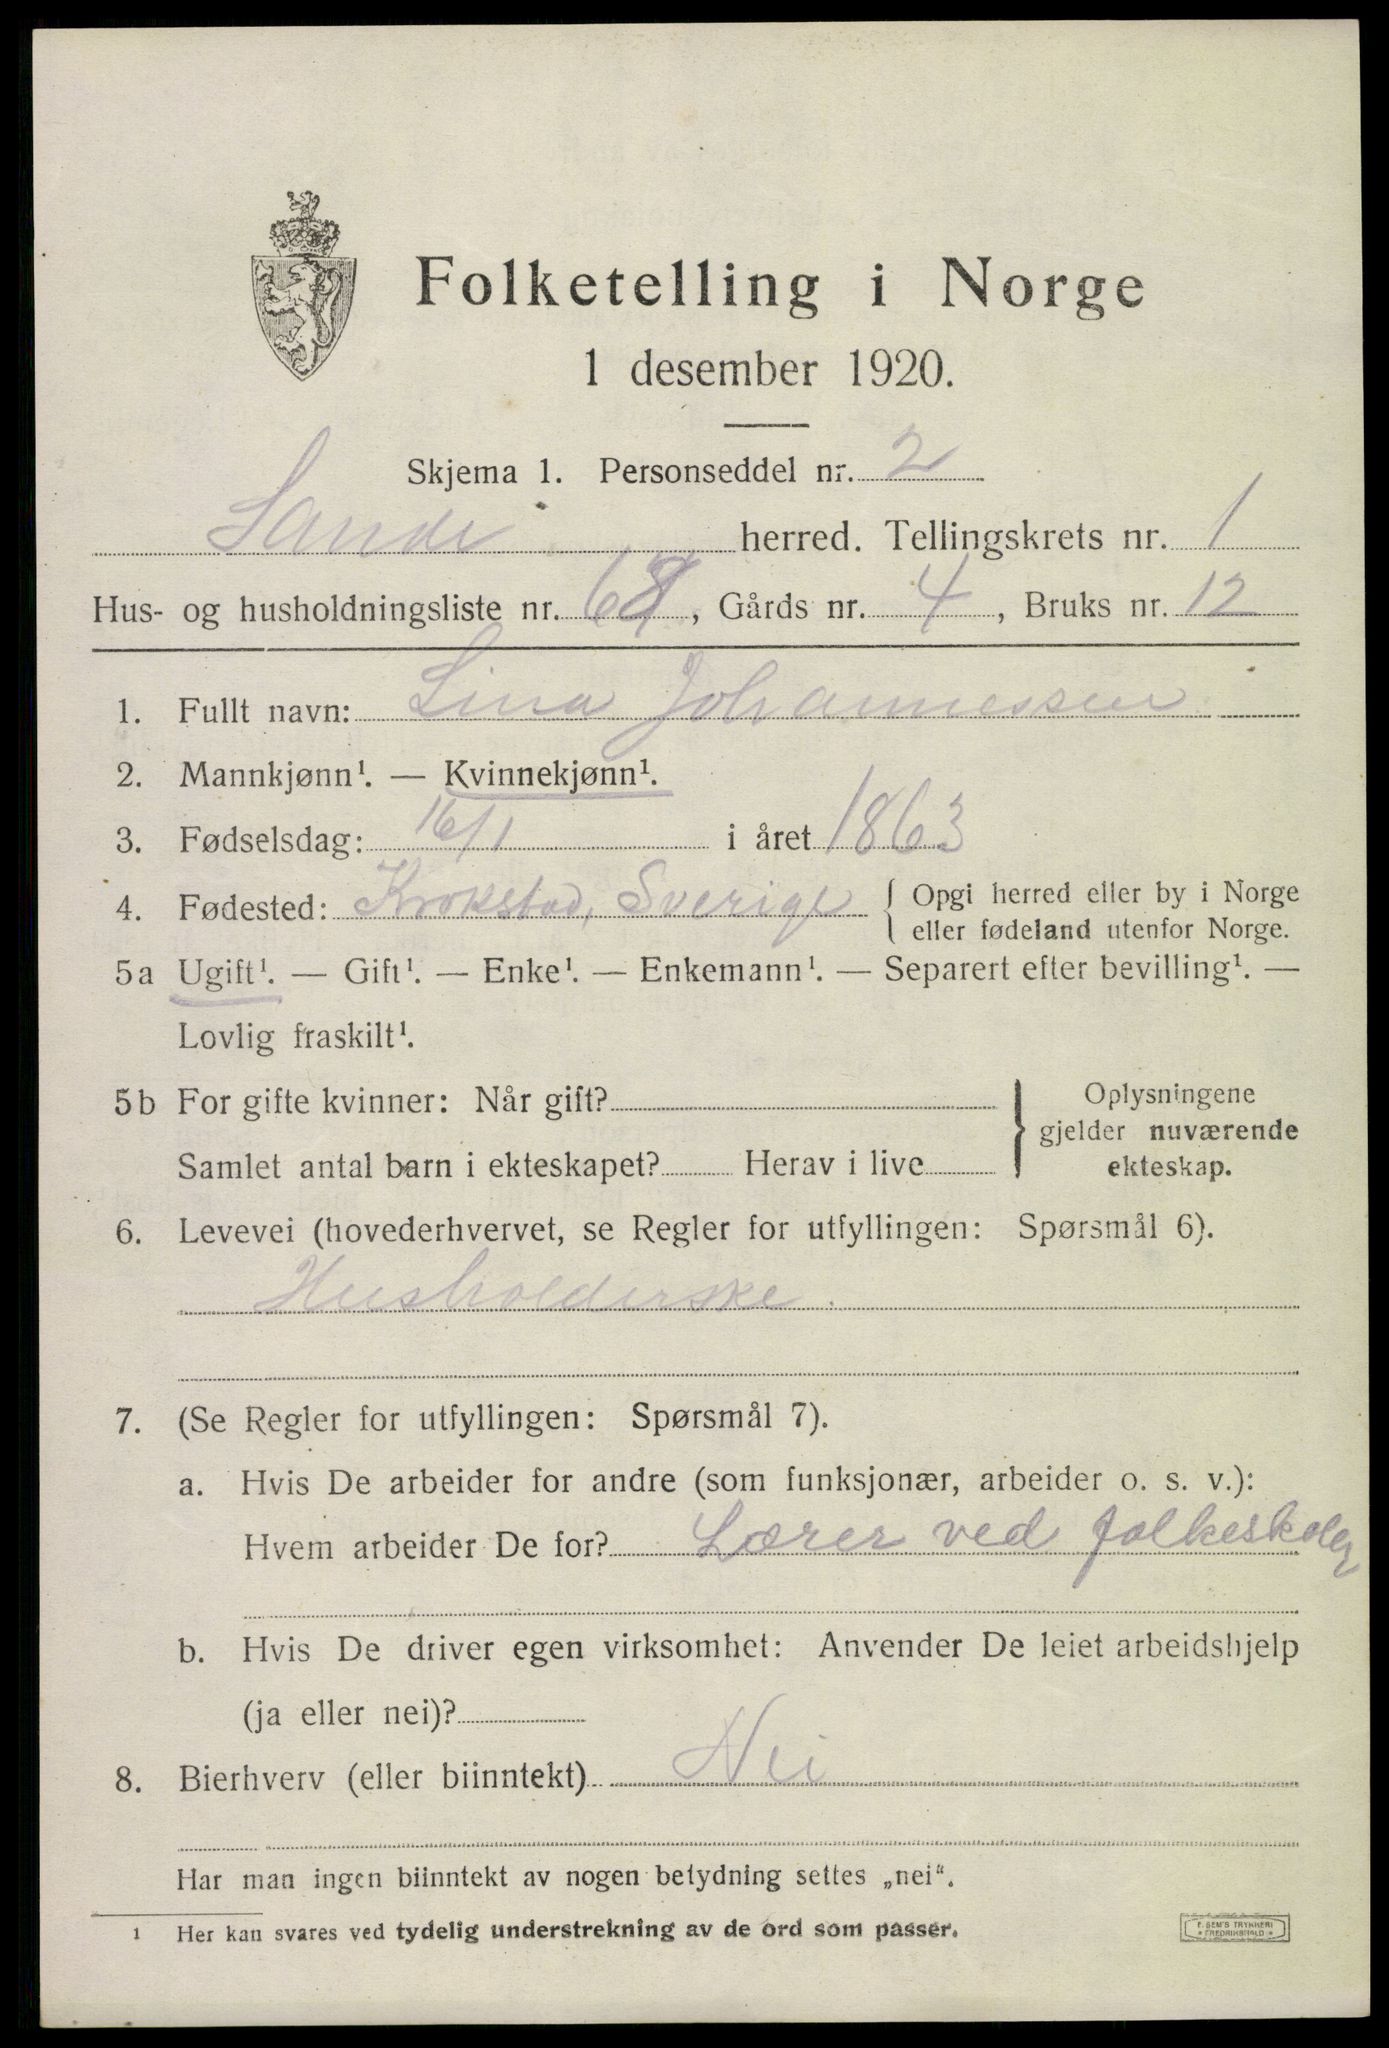 Folketelling i Norge
1 desember 1920.
Skjema 1. Personseddel nr. 2
Sande herred. Tellingskrets nr. 1
Hus- og husholdningsliste nr. 68, Gårds nr. 4, Bruks nr. 12
1. Fullt navn: Lina Johannessen
2. Mannkjønn¹. — Kvinnekjønn¹.
3. Fødselsdag: 16/1 i året 1863
4. Fødested: Krokstad, Sverige { Opgi herred eller by i Norge
eller fødeland utenfor Norge.
5a Ugift¹. — Gift¹. — Enke¹. — Enkemann¹. — Separert efter bevilling¹. —
Lovlig fraskilt¹.
5b For gifte kvinner: Når gift?
Samlet antal barn i ekteskapet? Herav i live
} Oplysningene
gjelder nuværende
ekteskap.
6. Levevei (hovederhvervet, se Regler for utfyllingen: Spørsmål 6).
Husholderske.
7. (Se Regler for utfyllingen: Spørsmål 7).
a. Hvis De arbeider for andre (som funksjonær, arbeider o. s. v.):
Hvem arbeider De for? Lærer ved folkeskolen
b. Hvis De driver egen virksomhet: Anvender De leiet arbeidshjelp
(ja eller nei)?
8. Bierhverv (eller biinntekt) Nei
Har man ingen biinntekt av nogen betydning settes „nei“.
1 Her kan svares ved tydelig understrekning av de ord som passer.
E. SEM'S TRYKKERI
* FREDRIKSHALD *